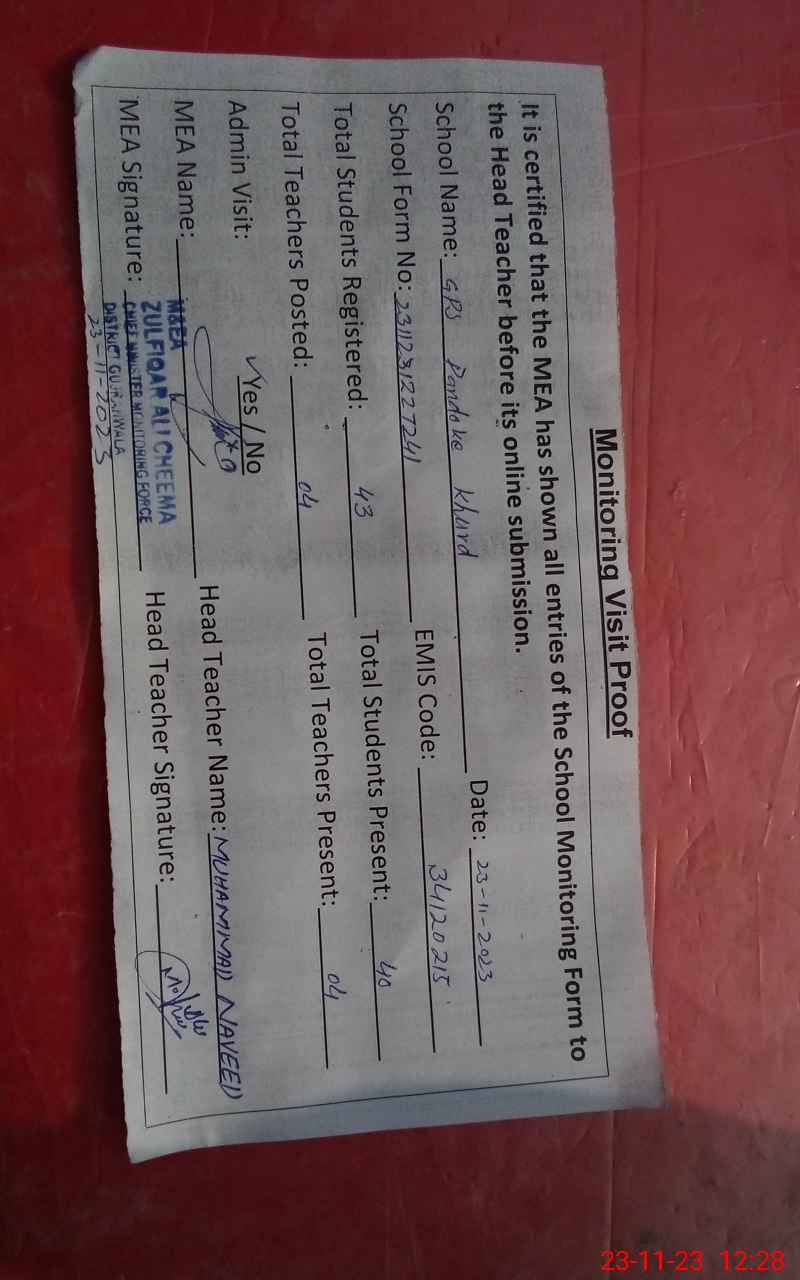 Monitoring Visit Proof
It is certified that the MEA has shown all entries of the School Monitoring Form to
the Head Teacher before its online submission.
School Name: GPS Pandoke Khurd Date: 23-11-2023
School Form No: 2311231227241 EMIS Code: 34120215
Total Students Registered: 43 Total Students Present: 40
Total Teachers Posted: 04 Total Teachers Present: 04
Admin Visit: ✓Yes / No
MEA Name: Head Teacher Name: MUHAMMAD NAVEED
MEA Signature: Head Teacher Signature:
M&EA
ZULFIQAR ALI CHEEMA
CHIEF MINISTER MONITORING FORCE
DISTRICT GUJRANWALA
23-11-2023
23-11-23 12:28